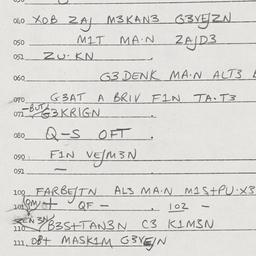 040 XOB ZAJ M3KAN3 G3VEJZN
050 MIT MA·N ZAJD3
051 ZU·KN
060 G3DENK MA·N ALT3
070 G3AT A BRIV FIN TA·T3
071 -BUT/ G3KRIGN
080 Q-S OFT
090 FIN VEJM3N
091 —
100 FARBEJTN ALS MA·N MIS+PU·X3
101 QF — 102 —
110 B3S+TAN3N C3 KIM3N
111 D8+ MASKIM G3VEJN